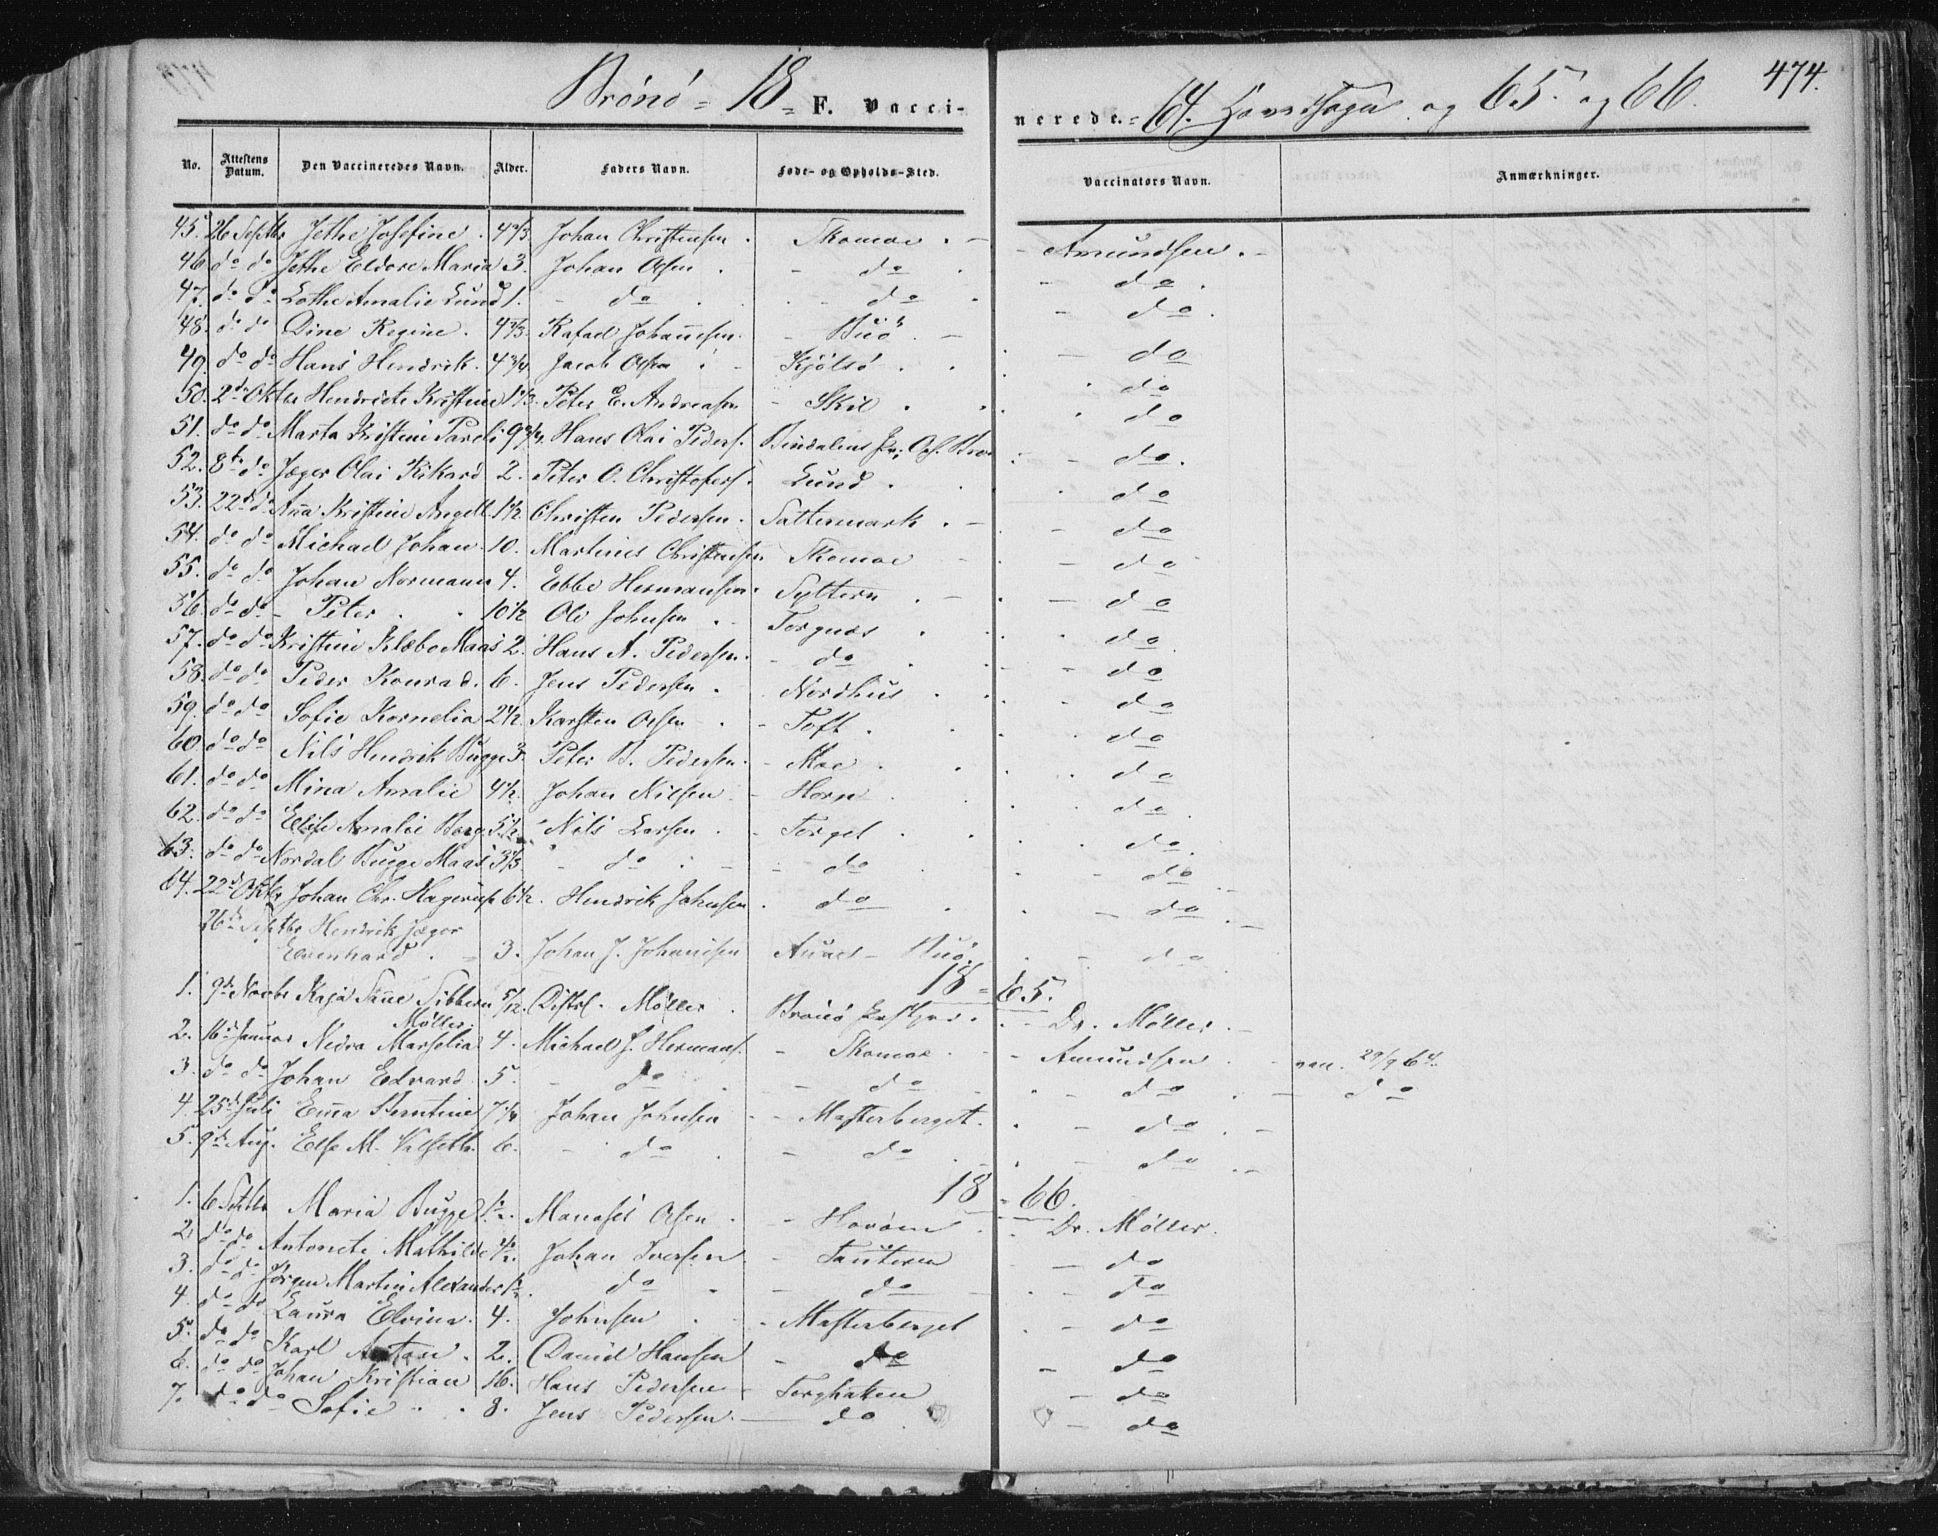 Brönö = 18 = F. Vacci-nerede. = 64. Hovedsogn og 65 og 66. 474.
No. Attestens Datum. Den Vaccineredes Navn. Alder. Faders Navn. Føde- og Opholds-Sted. Vaccinators Navn. Anmærkninger.
45. 26 Septbr Jethe Josefine. Johan Christensen. Skomoe. - Amundsen. -
46 do do Jethe Eldore Maria 3. Johan Olsen. - do - do.
47. do do Lothe Amalie Lund 1. - do - do - do.
48. do do Dine Regine. Rafael Johannesen. - Buö - do
49. do do Hans Hendrik. 4 3/4. Jacob Olsen - Kjölsö. - do
50. 2 Oktbr Hendriete Kristine 1 1/3. Peter E. Andreasen - Skil. do
51. do do Marta Kristine Pareli 9 3/4. Hans Olai Peders. Bindalens Pr; do.
52. 8 do Jæger Olai Rikard 2. Peter O. Christofers. Lund. do
53. 22 do Anna Kristine Angell. 1 1/2. Christen Pedersen. Sattermark. - do
54. do do Michael Johan. 10. Martinus Christensen Skomoe - do
55. do do Johan Normann 4. Ebbe Hermansen. Syltern. - do
56. do do - Peter. 10 1/2 Ole Johnsen. Torgnæs. do
57. do do Kristine Klæbo Maas 2. Hans A. Pedersen. - do. - do
58. do do Peder Konrad. 6. Jens Pedersen. Nordhus. - do
59. do do Sofie Kornelia 2 1/2 Karsten Olsen. - Toft. do
60 do do Nils Hendrik Bugge 3. Peter B. Pedersen. - Moe. do
61. do do Mina Amalie 4 1/2. Johan Nielsen - Horn. do
62. do do Elise Amalie Borg 5 1/2. Nils Larsen. - Torget. do.
63. do do Nordal Bugge Maas 3 1/3 - do - - do. do
64. 22 Oktbr Johan Chr. Hagerup 6 1/2. Hendrik Johnsen. do. - do -
26 Septbr Hendrik Jæger
Evenhard. - 3. Johan J. Johansen - Buö. - do
18 = 65.
1. 9 Novbr Kaja Sanne Sibbern 5/12 Distrl. Möller. Brönö Præstgrd. - Dr. Möller. -
Möller.
2. 16 Januar Nedra Marselia 4. Michael J. Hermans. - Skomoe. - Amundsen. - vac. 29/9 64.
3. do do Johan Edvard 5. - do. - do - do. - do
4. 25 Juli Emma Berntine Johan Johnsen - Masterberget. - do. -
5. 9 Aug. Else M. Valseth. 6. - do. - do. - do. -
18 = 66.
1. 6 Septbr Maria Bugge Manases Olsen. - Dr. Möller.
2. do do Antonete Mathilde Johan Iversen - - do
3. do do Jörgen Martin Alexander do. - do - do
4. do do Laura Elvina. 4. Johnsen. - Masterberget. - do
5. do do Karl Anton. 2. David Hansen - do - do
6. do do Johan Kristian 16. Hans Pedersen - Torghatten - do
7. do do Sofie. 8. Jens Pedersen. - do. - do